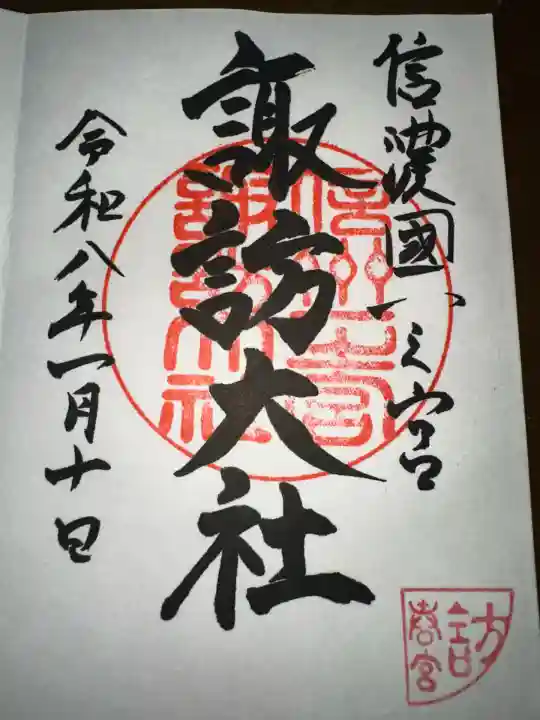 信濃國一之宮
諏訪大社
令和八年一月十日
訪
春宮